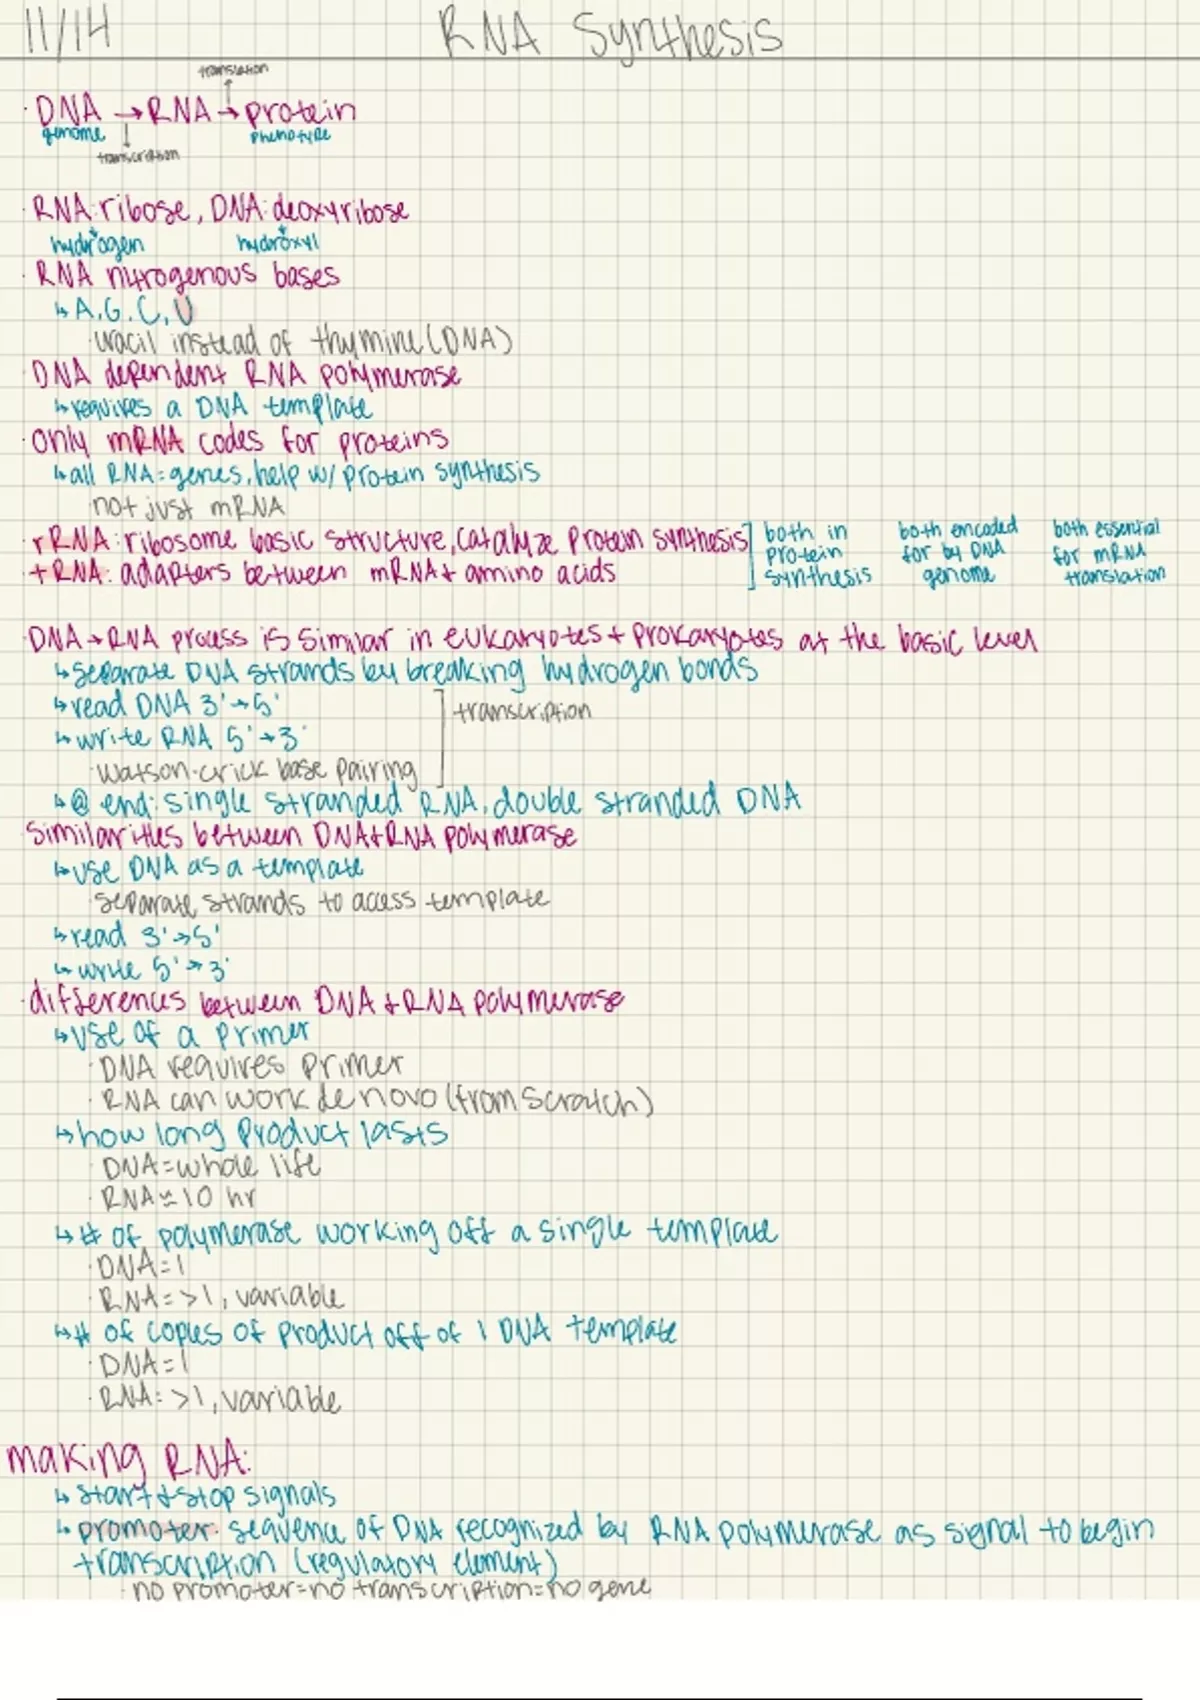 11/14 RNA Synthesis
translation
· DNA → RNA → protein
genome phenotype
transcription
· RNA: ribose, DNA: deoxyribose
hydrogen hydroxyl
· RNA nitrogenous bases
↳ A, G, C, U
· uracil instead of thymine (DNA)
DNA dependent RNA polymerase
↳ requires a DNA template
· only mRNA codes for proteins
↳ all RNA = genes, help w/ protein synthesis
· not just mRNA
· rRNA: ribosome basic structure, catalyze protein synthesis
· tRNA: adapters between mRNA + amino acids
both in protein synthesis
both encoded for by DNA genome
both essential for mRNA translation
· DNA → RNA process is similar in eukaryotes + prokaryotes at the basic level
↳ separate DNA strands by breaking hydrogen bonds
↳ read DNA 3' → 5'
↳ write RNA 5' → 3'
· Watson-crick base pairing
transcription
↳ @ end: single stranded RNA, double stranded DNA
· similarities between DNA + RNA polymerase
↳ use DNA as a template
· separate strands to access template
↳ read 3' → 5'
↳ write 5' → 3'
· differences between DNA + RNA polymerase
↳ use of a primer
· DNA requires primer
· RNA can work de novo (from scratch)
↳ how long product lasts
· DNA = whole life
· RNA ≈ 10 hr
↳ # of polymerase working off a single template
· DNA = 1
· RNA = >1, variable
↳ # of copies of product off of 1 DNA template
· DNA = 1
· RNA: >1, variable
making RNA:
↳ start + stop signals
↳ promoter: sequence of DNA recognized by RNA polymerase as signal to begin
transcription (regulatory element)
· no promoter = no transcription = no gene